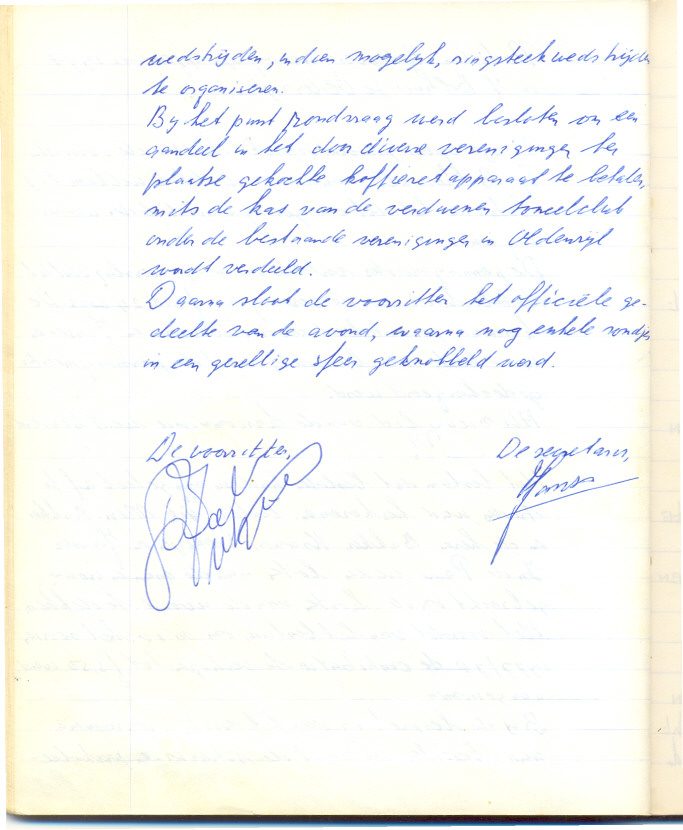 wedstrijden, indien mogelijk, ringsteekwedstrijden
te organiseren.
Bij het punt rondvraag werd besloten om een
aandeel in het door diverse verenigingen ter
plaatse gekochte koffiezetapparaat te betalen,
mits de kas van de verdwenen toneelclub
onder de bestaande verenigingen in Oldenrijl
wordt verdeeld.
Daarna sloot de voorzitter het officiële ge-
deelte van de avond, waarna nog enkele rondjes
in een gezellige sfeer geknobbeld werd.
De voorzitter,
De segretaris,